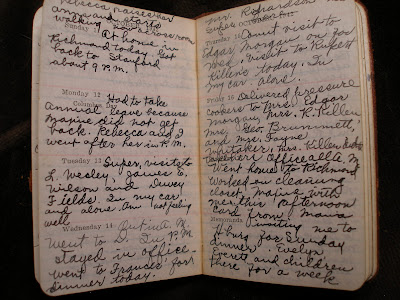 Rebecca raises her
arms and starts
walking
Sunday 11 At home in
Richmond today. Got
back to Stanford
about 9 P.M.
Monday 12 Had to take
Columbus Day
Annual leave because
Maxine did not get
back. Rebecca and I
went after her in P.M.
Tuesday 13 Super. visits to
L. Wesley, James E.
Wilson and Dewey
Fields. In my car
and alone. Am not feeling
well.
Wednesday 14
Went to D. In P.M.
stayed in office.
Went to Frances' for
dinner today.
Mr. Richardson
Thursday 15 Count visit to
Edgar Morgan on for
Med. Visit to Rufest
Killens today. In
my car alone.
Friday 16 Delivered pressure
cookers to Mrs. Edgar
Morgan, Mrs. R. Killen
Mrs. Geo. Brummett,
and Mrs. Fayne
Whitaker, Mrs. Killen
Office all A.M.
Went home to Richmond
Worked on cleaning
closet, Maxine with
me this afternoon
card from Mama
Memoranda inviting me to
H'burg for Sunday
dinner. Evelyn
Everett and children
there for a week